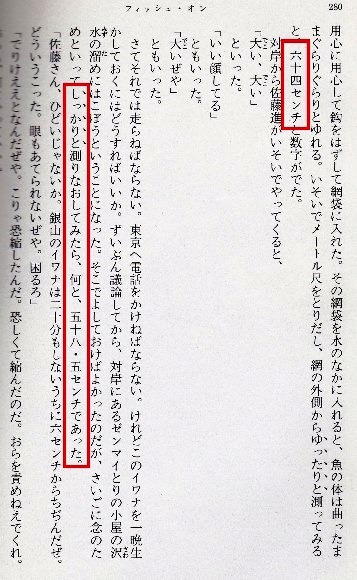 フィッシュ・オン
280
用心に用心して鈎をはずして網袋に入れた。その網袋を水のなかに入れると、魚の体は曲ったま
まぐらりぐらりとゆれる。いそいでメートル尺をとりだし、網の外側からゆったりと測ってみる
と、六十四センチと数字がでた。
対岸から佐藤進がいそいでやってくると、
「大い、大い」
といった。
「いい顔してる」
ともいった。
「大いぜや」
ともいった。
さてそれでは走らねばならない。東京へ電話をかけねばならない。けれどこのイワナを一晩生
かしておくにはどうすればいいか。ずいぶん議論してから、対岸にあるゼンマイとりの小屋の沢
水の溜めにはこぼうということになった。そこでよしておけばよかったのだが、さいごに念のた
めといってしっかりと測りなおしてみたら、何と、五十八・五センチであった。
「佐藤さん、ひどいじゃないか。銀山のイワナは二十分もしないうちに六センチからちぢんだぜ。
どういうこった。眼もあてられないぜや。困るろ」
「でりけえとなんだぜや。こりゃ恐縮したんだ。恐しくて縮んだのだ。おらを責めねえでくれ。